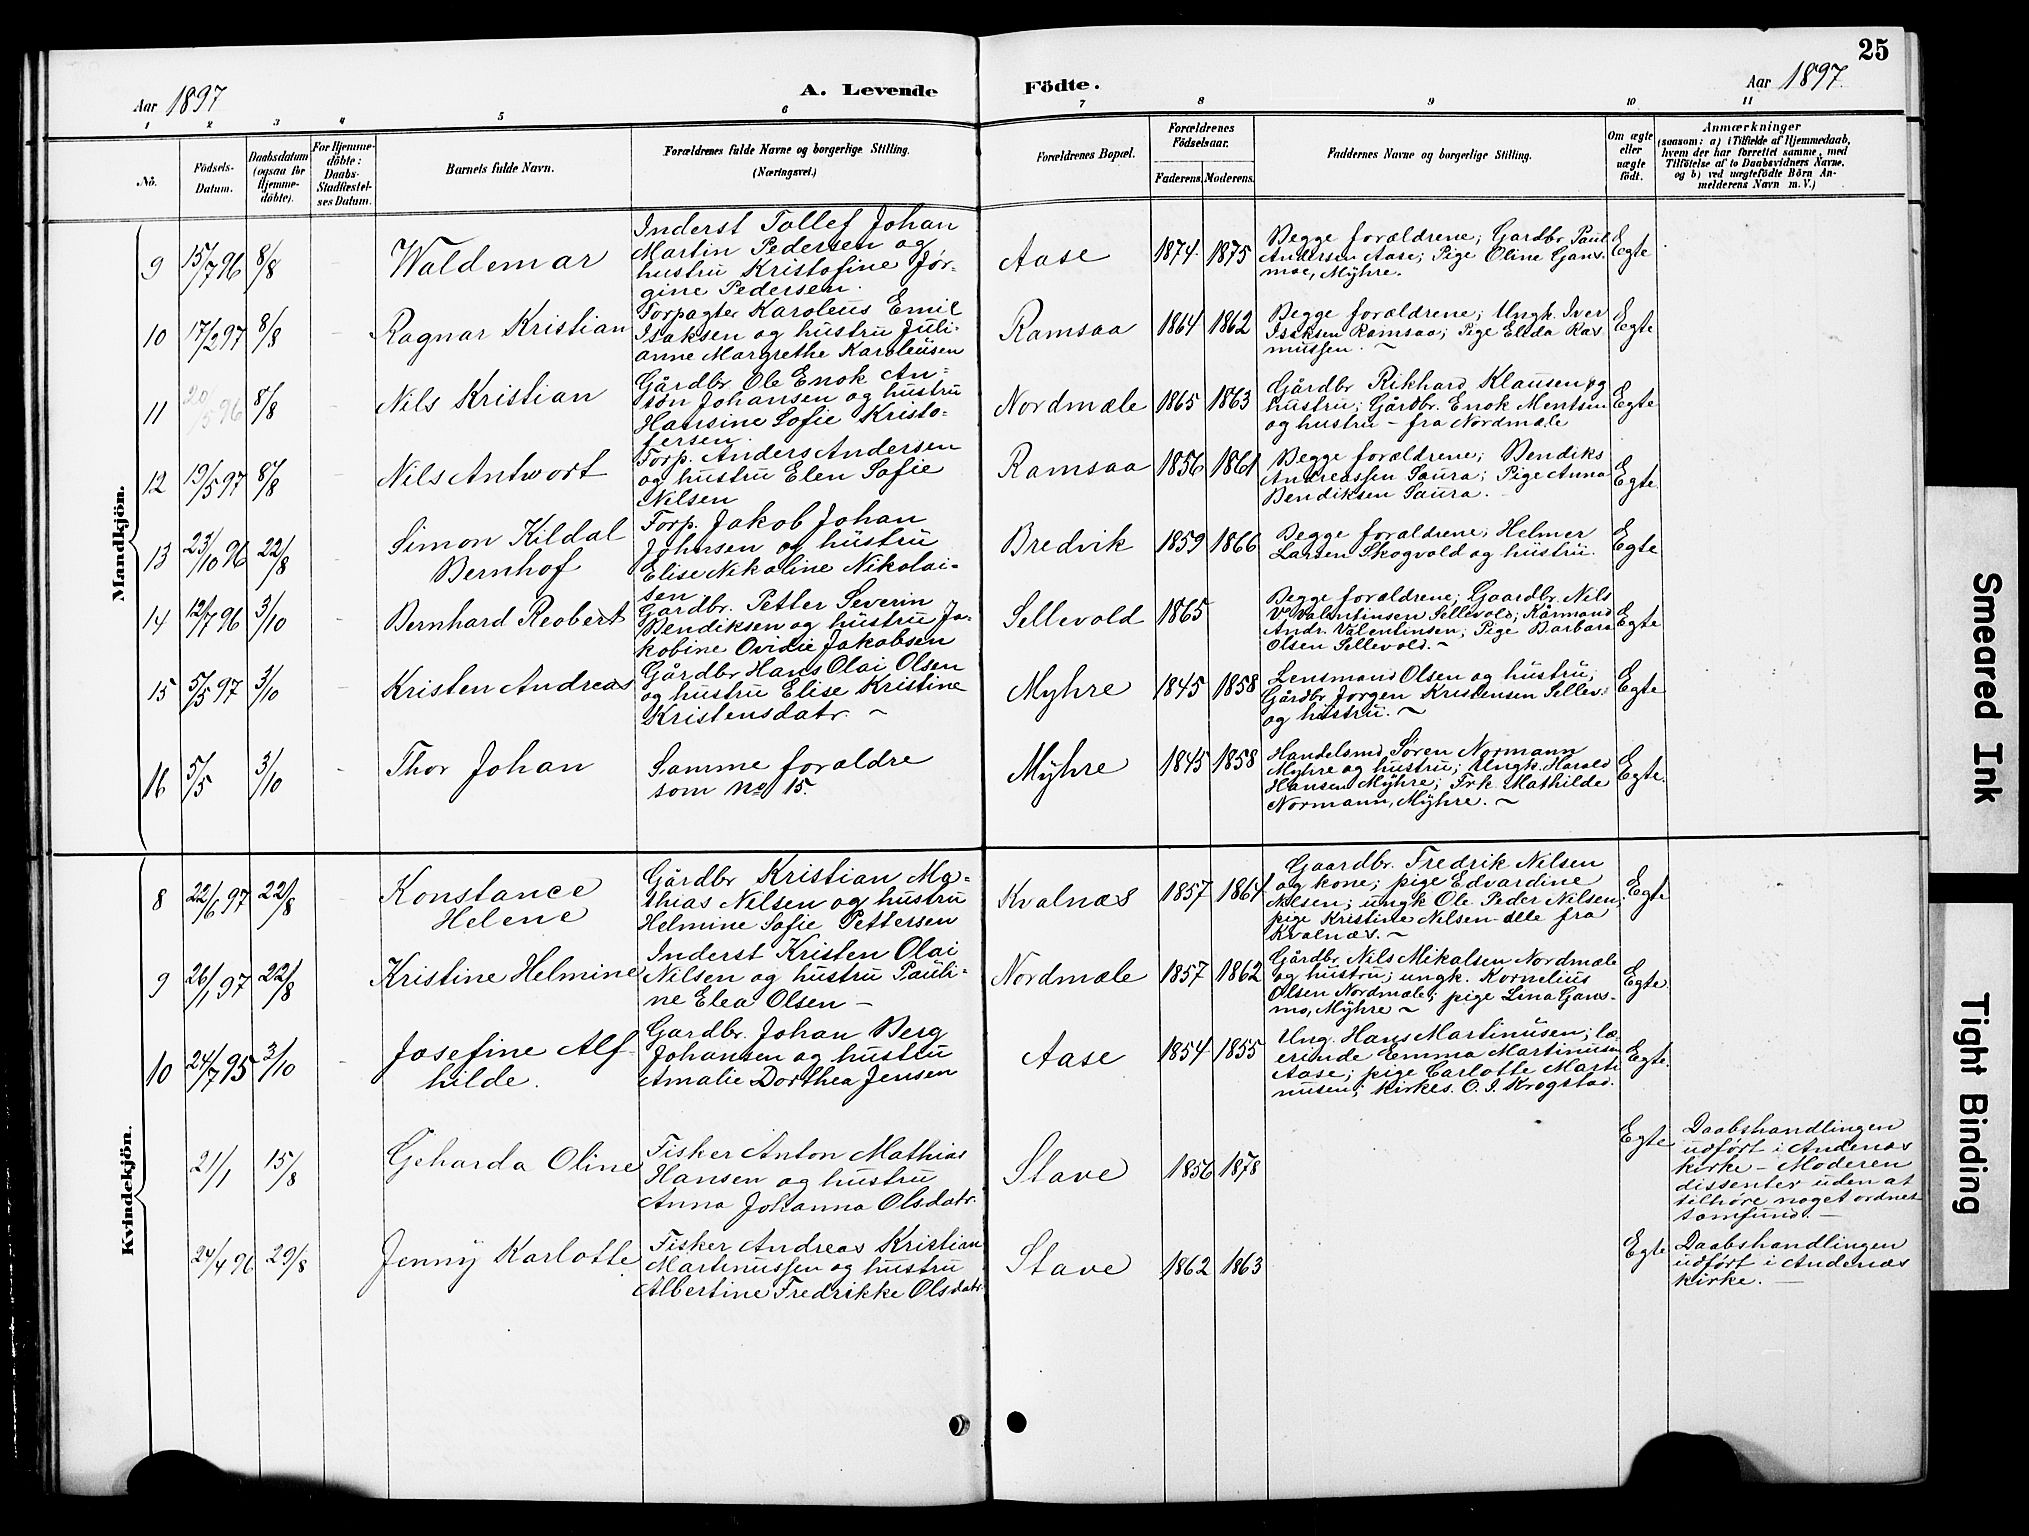 25
Aar 1897
A. Levende Födte.
Aar 1897.
1 2 3 4 5 6 7 8 9 10 11
No.
Födsels-
Datum.
Daabsdatum
(ogsaa for
Hjemme-
döbte).
For Hjemme-
döbte:
Daabs-
Stadfæstel-
ses Datum.
Barnets fulde Navn.
Forældrenes fulde Navne og borgerlige Stilling.
(Næringsvei.)
Forældrenes Bopæl.
Forældrenes
Födselsaar.
Faderens. Moderens.
Faddernes Navne og borgerlige Stilling.
Om ægte
eller
uægte
födt.
Anmærkninger
(saasom: a) i Tilfælde af Hjemmedaab,
hvem der har forrettet samme, med
Tilföielse af to Daabsvidners Navne,
og b) ved uægtefödte Börn An-
melderens Navn m. V.)
Mandkjön.
9 15/7 96 8/8
Waldemar
Inderst Tollef Johan
Martin Pedersen og
hustru Kristofine Jør-
gine Pedersen.
Aase
1874. 1875
Begge forældrene; Gardbr. Paul
Andersen Aase; Pige Oline Gans-
moe, Myhre.
Egte
10 17/2 97 8/8
Ragnar Kristian
Forpagter Karoleus Emil
Isaksen og hustru Juli-
anne Margrethe Karoleusen
Ramsaa
1864 1862
Begge forældrene; Ungk. Iver
Isaksen Ramsaa; Pige Elida Ras
mussen.
Egte
11 20/5 96 8/8
Nils Kristian
Gårdbr. Ole Enok An-
ton Johansen og hustru
Hansine Sofie Kristo-
fersen.
Nordmæle
1865 1863
Gårdbr. Rikhard Klausen og
hustru; Gårdbr. Enok Mentsen
og hustru - fra Nordmæle
Egte
12 19/5 97 8/8
Nils Antwort
Forp. Anders Andersen
og hustru Elen Sofie
Nilsen
Ramsaa
1856 1861
Begge forældrene; Bendiks
Andreassen Saura; Pige Anna
Bendiksen Saura.
Egte.
13 23/10 96 22/8
Simon Kildal
Bernhof
Forp. Jakob Johan
Johnsen og hustru
Elise Nikoline Nikolai-
sen
Bredvik
1859 1866
Begge forældrene, Helmer
Larsen Skogvold og hustru.
Egte
14 12/7 96 3/10
Bernhard Reobert
Gardbr. Petter Severin
Bendiksen og hustru Ja-
kobine Ovidie Jakobsen
Sellevold
1865
Begge forældrene; Gaardbr. Nils
V. Valentinsen Sellevold; Kårmand
Andr. Valentinsen; Pige Barbara
Olsen Sellevold.
Egte
15 5/5 97 3/10
Kristen Andreas
Gårdbr Hans Olai Olsen
og hustru Elise Kristine
Kristensdatr.
Myhre
1845 1858
Lensmand Olsen og hustru;
Gårdbr. Jorgen Kristensen Sellev:
og hustru.
Egte
16 5/5 3/10
Thor Johan
Samme forældre
som No 15.
Myhre
1845 1858
Handelsmd. Søren Normann
Myhre og hustru; Ungk. Harald
Hansen Myhre; Frk. Mathilde
Normann, Myhre.
Egte.
Kvindekjön.
8 22/6 97 22/8
Konstance
Helene
Gårdbr Kristian Ma-
thias Nilsen og hustru
Helmine Sofie Pettersen
Kvalnæs
1857 1864
Gaardbr. Fredrik Nilsen
og kone; pige Edvardine
Nilsen; ungk. Ole Peder Nilsen,
pige Kristine Nilsen - alle fra
Kvalnæs.
Egte
9 26/1 97 22/8
Kristine Helmine
Inderst Kristen Olai
Nilsen og hustru Pauli-
ne Elea Olsen
Nordmæle
1857 1862
Gårdbr. Nils Mikalsen Nordmæle
og hustru; ungk. Kornelius
Olsen Nordmæle; pige Lina Gans-
mo, Myhre
Egte.
10 24/7 95 3/10
Josefine Alf-
hilde.
Gardbr. Johan Berg
Johansen og hustru
Amalie Dorthea Jensen
Aase
1854 1855
Ung. Hans Martinusen; læ-
rerinde Emma Martinusen
Aase; pige Carlotte Marti
nusen; kirkes. O. J. Krogstad.
Egte.
21/1 15/8
Geharda Oline
Fisker Anton Mathias
Hansen og hustru
Anna Johanna Olsdatr.
Stave
1856 1878
Egte
Daabshandlingen
udført i Andenæs
kirke - Moderen
dissenter uden at
tilhøre noget ordnet
samfund.
24/4 96 29/8
Jenny Karlotte
Fisker Andreas Kristian
Martinussen og hustru
Albertine Fredrikke Olsdatr
Stave
1862 1863
Egte
Daabshandlingen
udført i Andenæs
kirke.
Smeared Ink
Tight Binding